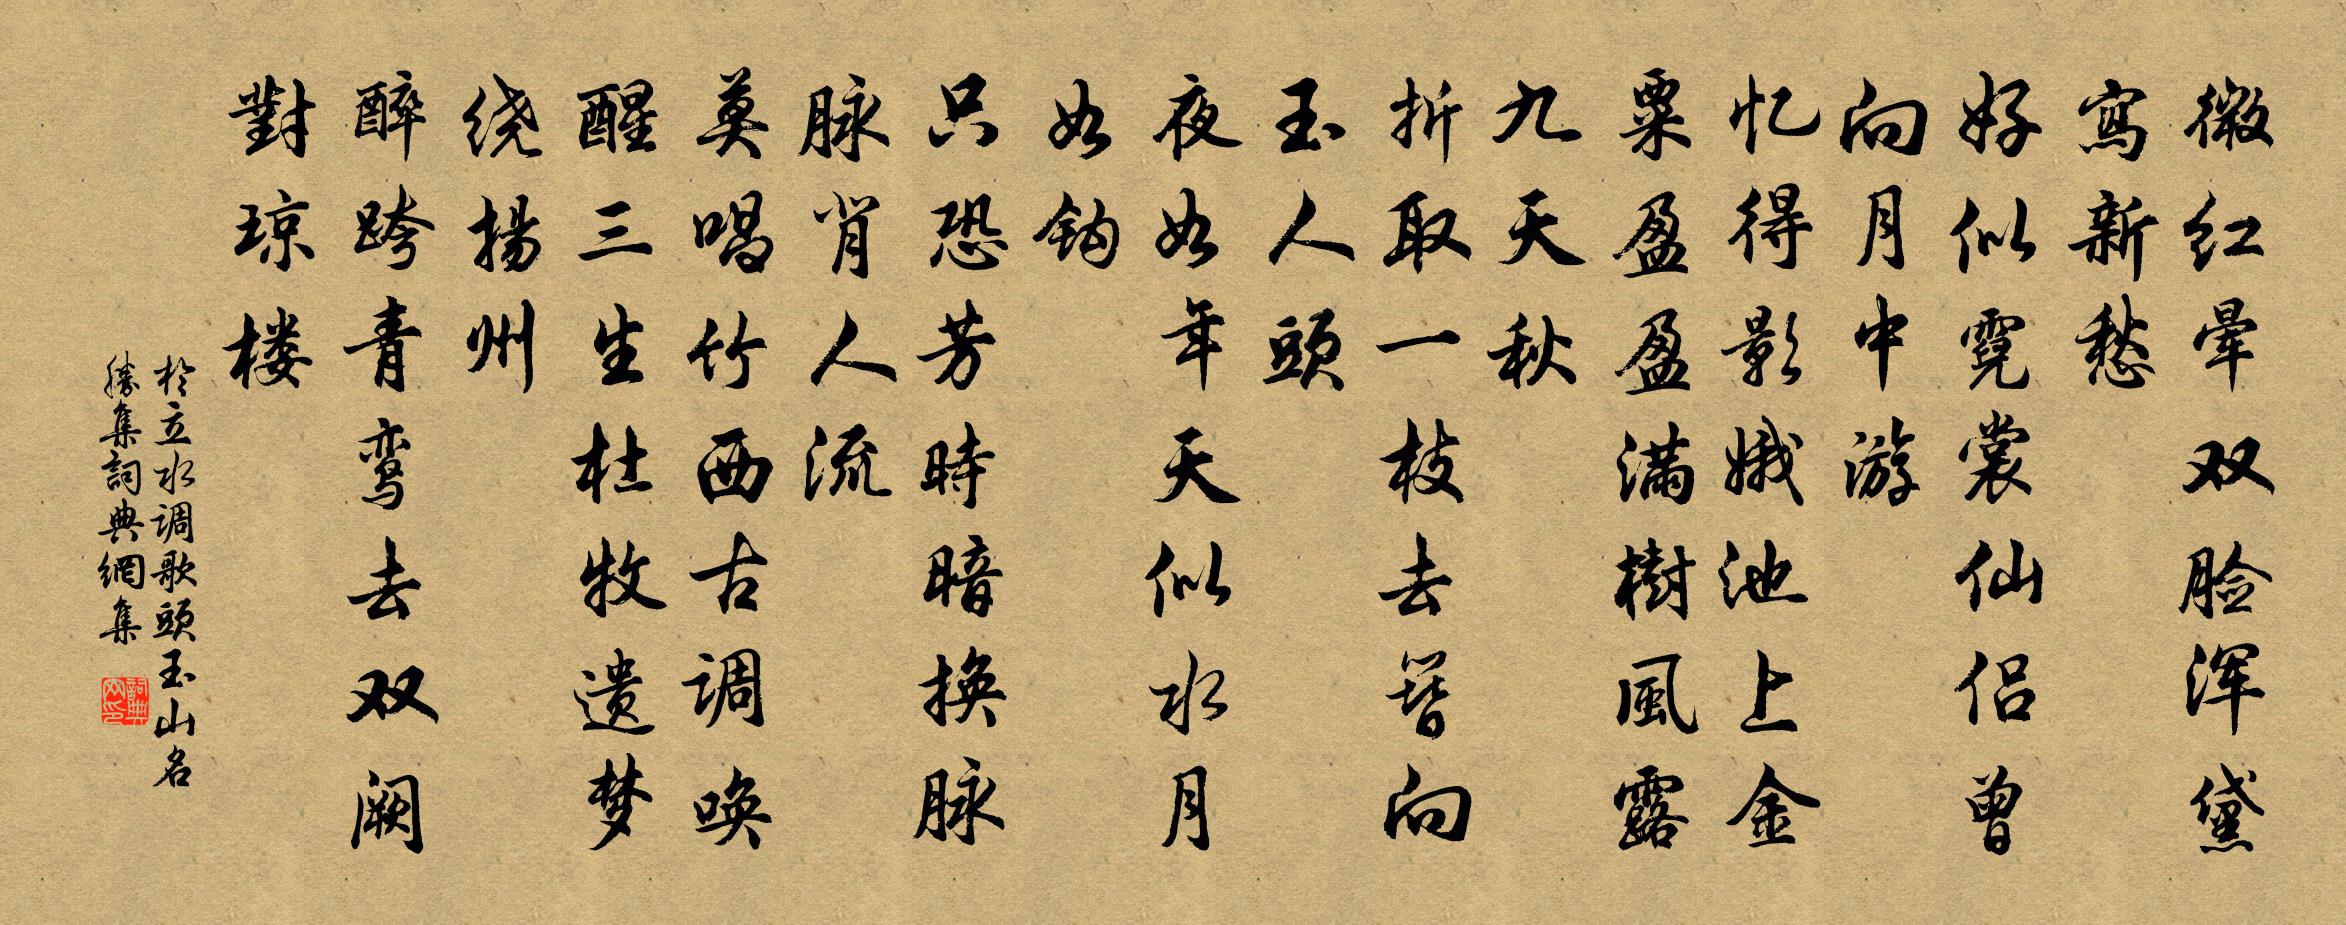 微红晕双脸浑黛
寫新愁
好似霓裳仙侣曾
向月中游
忆得影娥池上金
粟盈盈满樹風露
九天秋
折取一枝去簪向
玉人頭
夜如年天似水月
如钩
只恐芳時暗換脉
脉肖人流
莫唱竹西古调唤
醒三生杜牧遗梦
绕揚州
醉跨青鸾去双阙
對琼楼
於立水调歌頭玉山名
勝集詞典網集
詞典網印